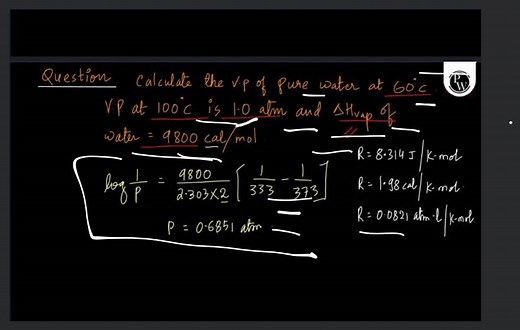 Question Calculate the V.P of pure water at 60°C
VP at 100°C is 1.0 atm and ΔHvap of
water = 9800 cal/mol
R = 8.314 J/K·mol
log 1/P = 9800/2.303×2 [1/333 - 1/373]
R = 1.98 cal/K·mol
R = 0.0821 atm·l/K·mol
P = 0.6851 atm
PW